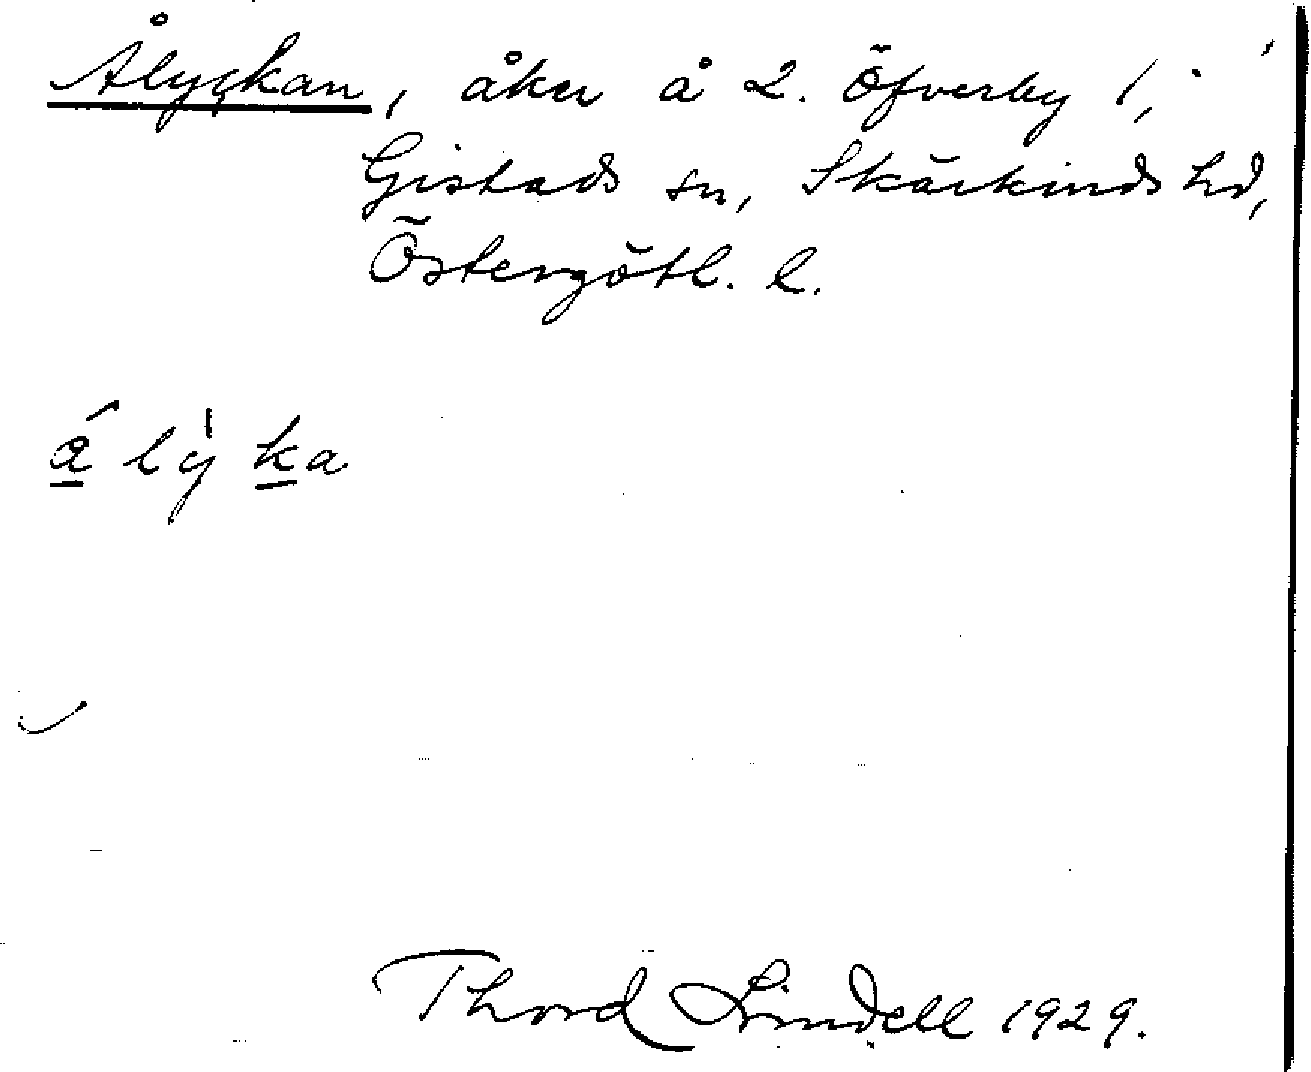 Ålyckan, åker å 2. Öfverby 1,
Gistads sn, Skärkinds hd,
Östergötl. l.
á lẏ ka
Thord Lindell 1929.